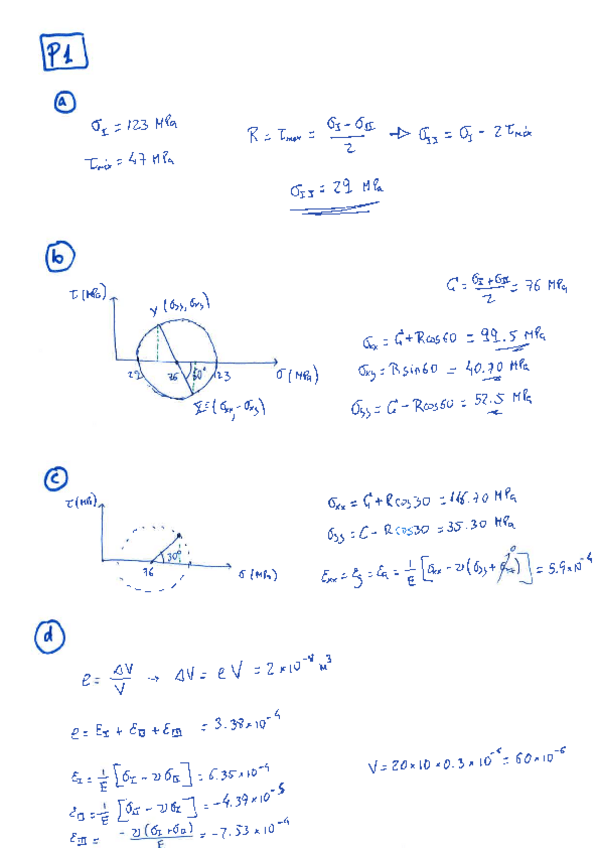 P1
a
σ_I = 123 MPa
τ_máx = 47 MPa
R = τ_max = (σ_I - σ_II)/2 → σ_II = σ_I - 2τ_máx
σ_II = 29 MPa
b
τ (MPa)
Y (σ_yy, σ_xy)
29 76 60° 123 σ (MPa)
X = (σ_xx, -σ_xy)
C = (σ_I + σ_II)/2 = 76 MPa
σ_xx = C + R cos 60 = 99.5 MPa
σ_xy = R sin 60 = 40.70 MPa
σ_yy = C - R cos 60 = 52.5 MPa
c
τ (MPa)
30°
76 σ (MPa)
σ_xx = C + R cos 30 = 116.70 MPa
σ_yy = C - R cos 30 = 35.30 MPa
= 1/E [σ_xx - ν(σ_yy + 0)] = 5.9×10^-4
d
e = ΔV/V → ΔV = e V = 2×10^-8 m^3
e = ε_I + ε_II + ε_III = 3.38×10^-4
ε_I = 1/E [σ_I - ν σ_II] = 6.35×10^-4
ε_II = 1/E [σ_II - ν σ_I] = -4.39×10^-5
ε_III = -ν(σ_I + σ_II)/E = -2.53×10^-4
V = 20×10×0.3×10^-6 = 60×10^-6